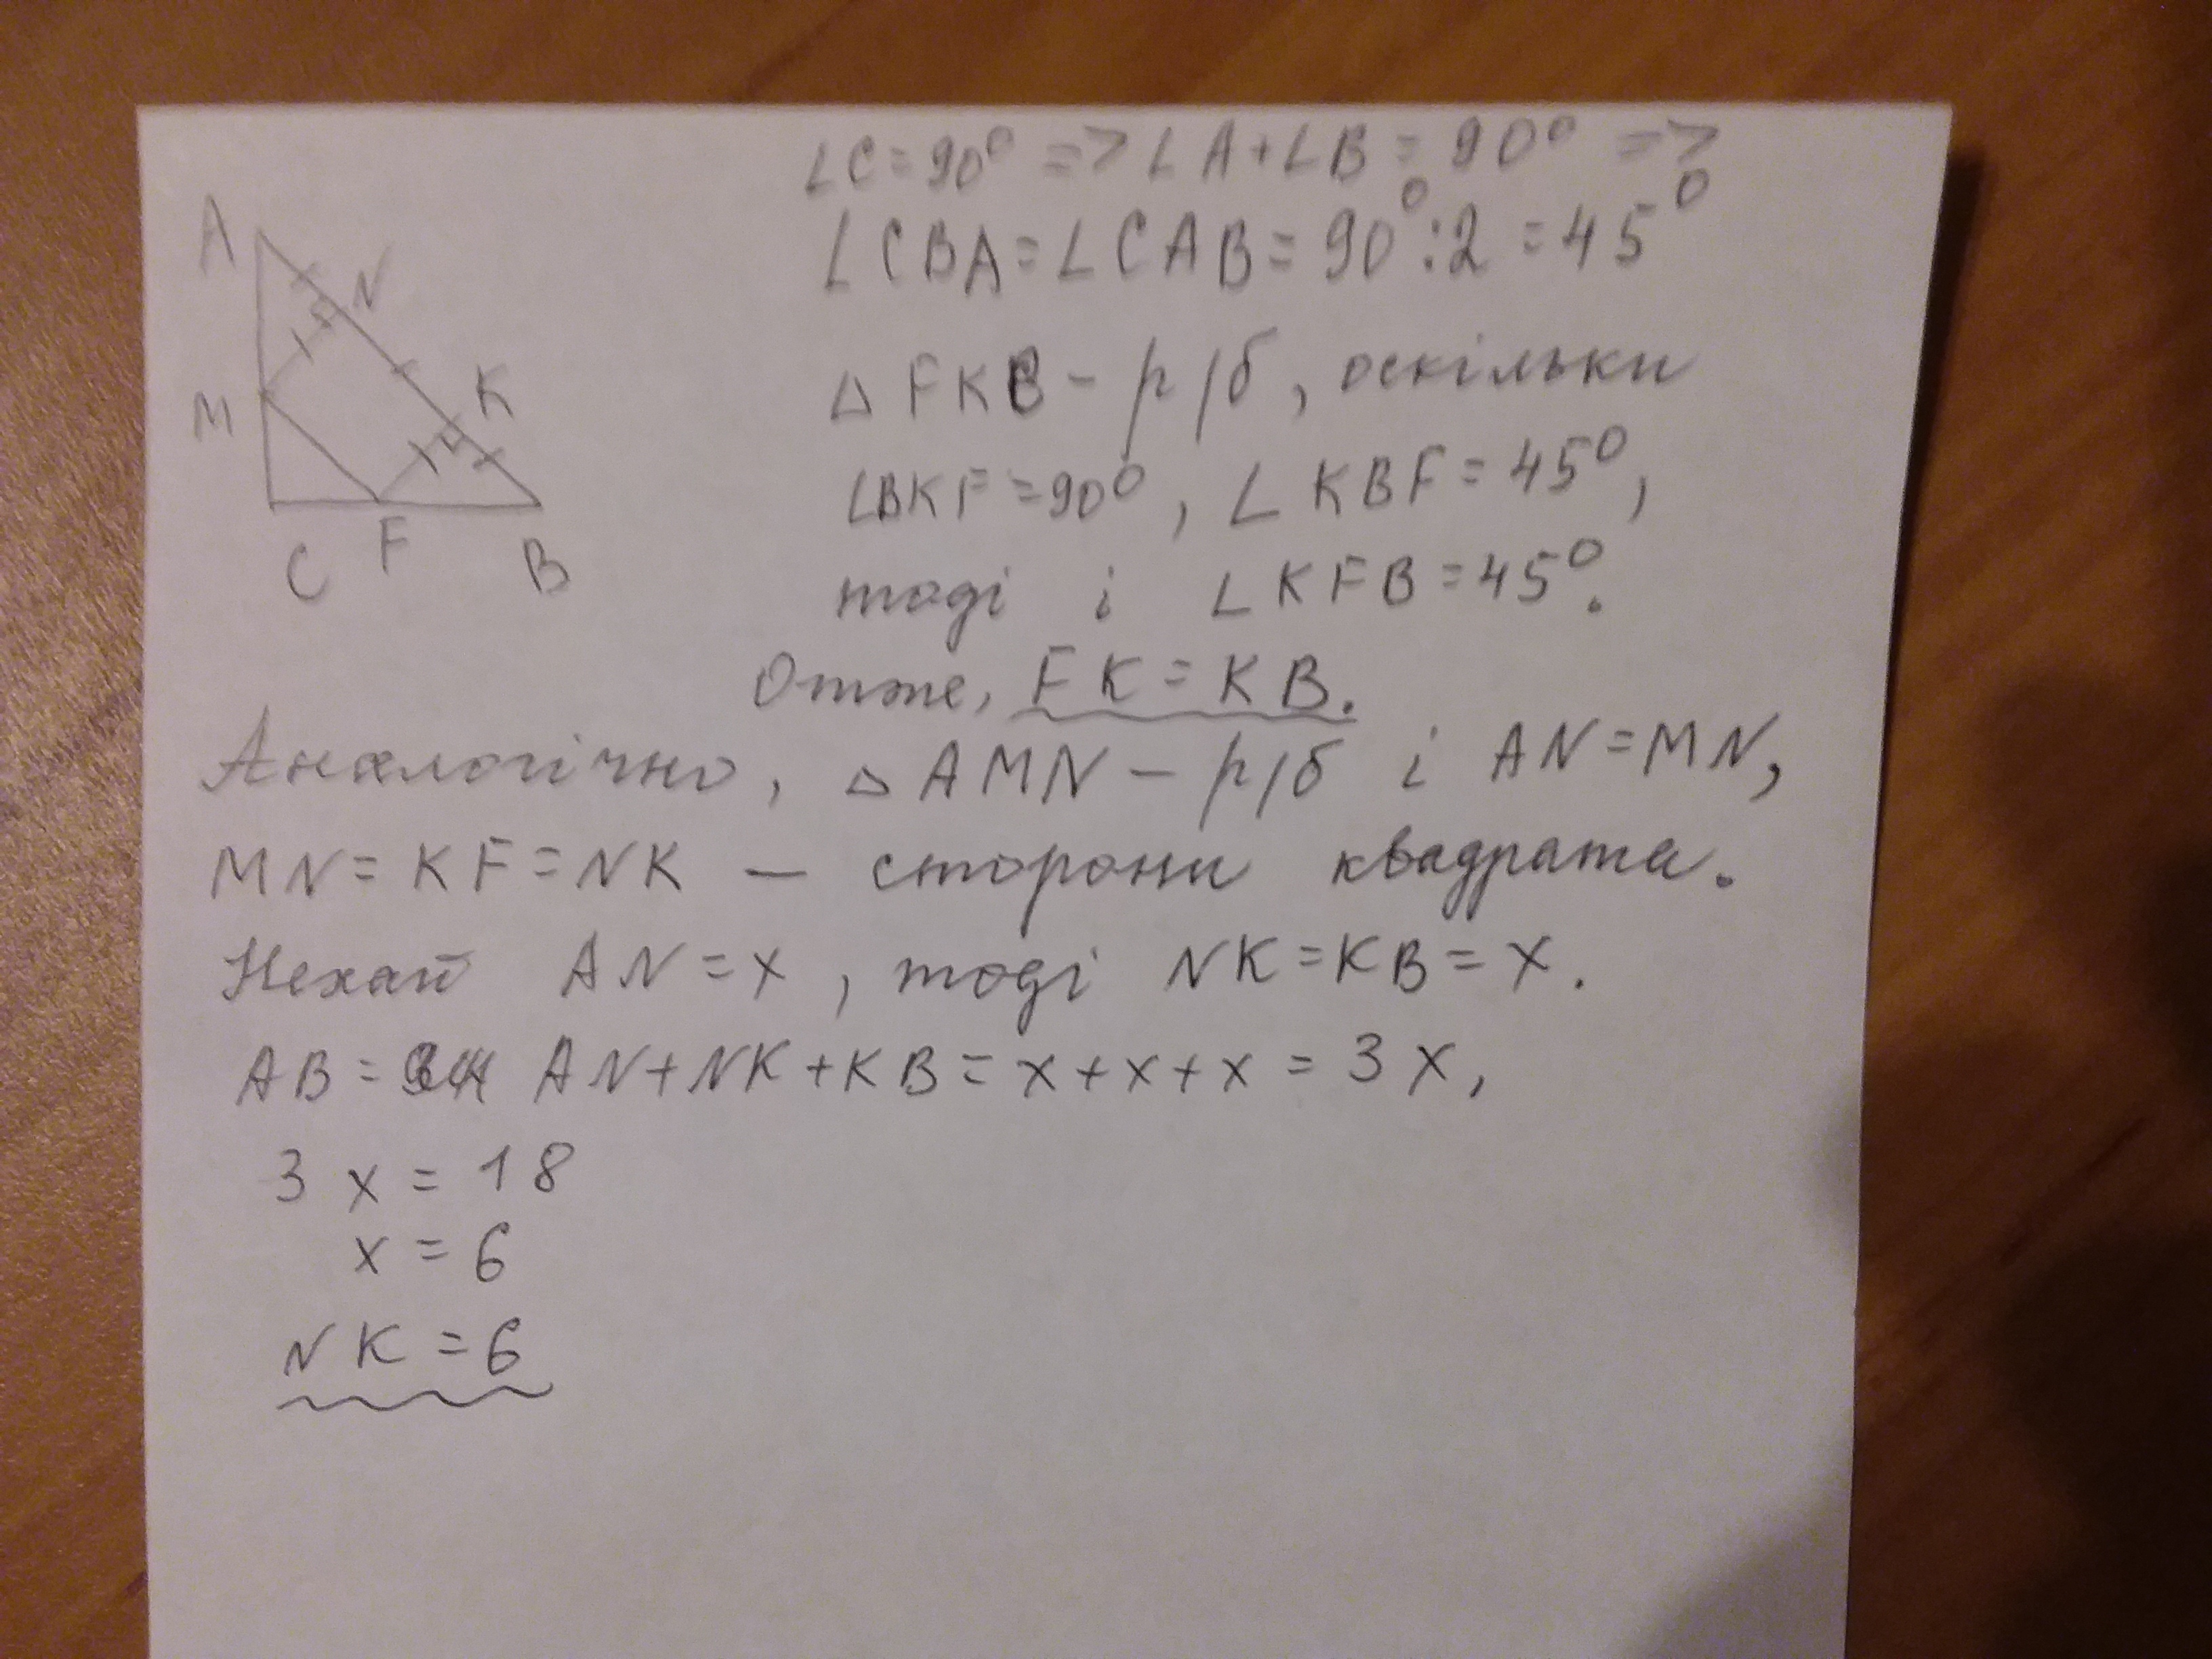 ∠C=90° => ∠A+∠B=90° =>
∠CBA=∠CAB=90°:2=45°
A
N
K
M
C
F
B
△FKB - р/б, оскільки
∠BKF=90°, ∠KBF=45°,
тоді і ∠KFB=45°.
Отже, FK=KB.
Аналогічно, △AMN - р/б і AN=MN,
MN=KF=NK — сторони квадрата.
Нехай AN=x, тоді NK=KB=x.
AB= AN+NK+KB=x+x+x=3x,
3x=18
x=6
NK=6